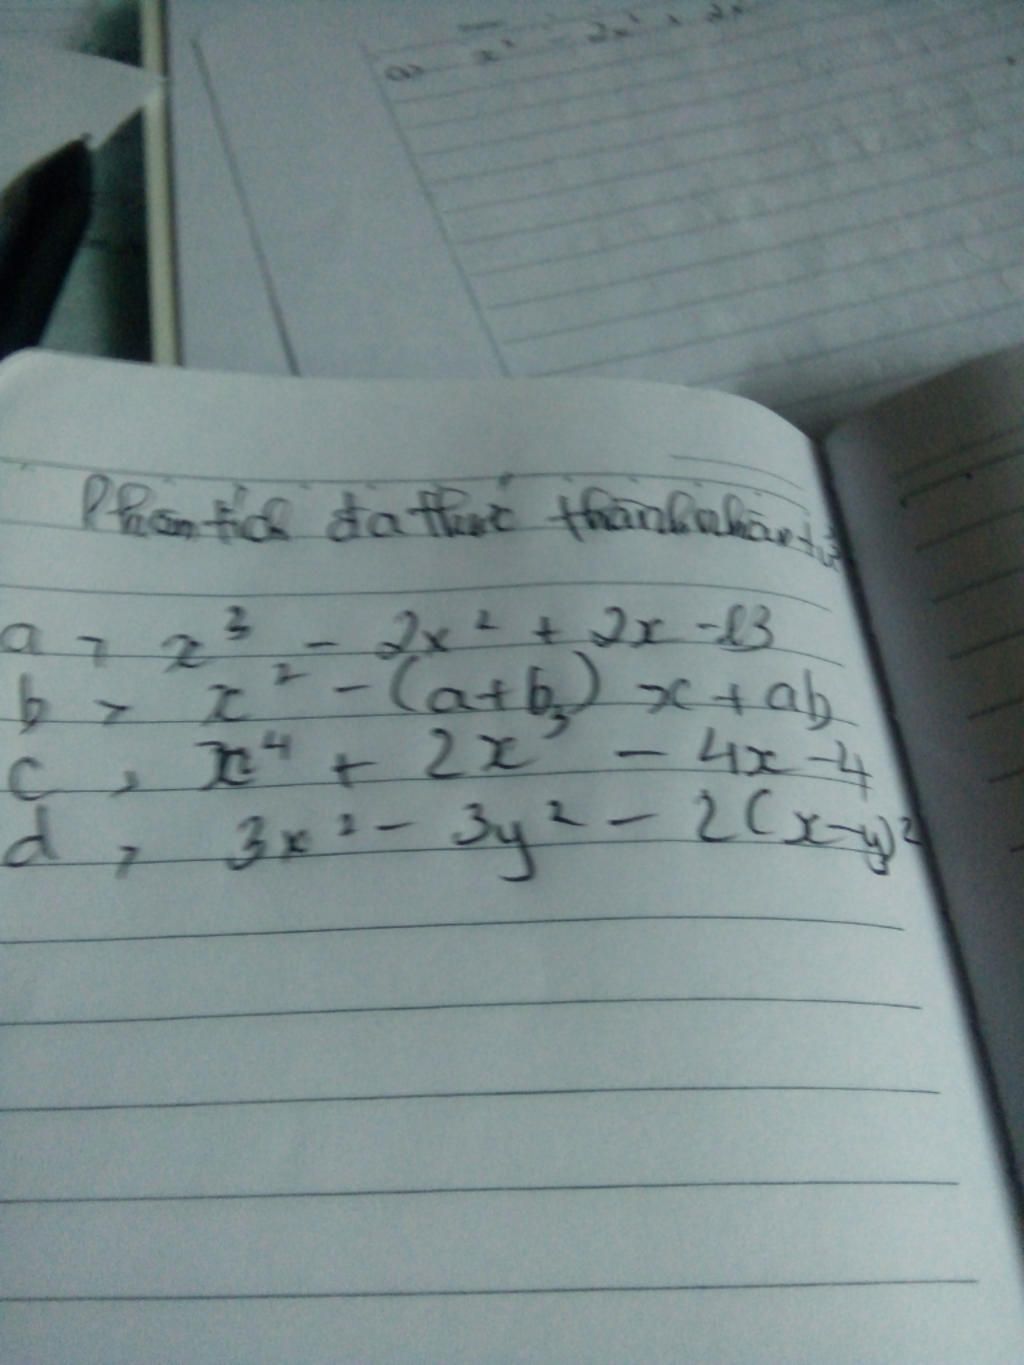 a> x² - 2x² + 2x
Phân tích đa thức thành nhân tử
a, x³ - 2x² + 2x - 13
b, x² - (a+b) x + ab
c, x⁴ + 2x³ - 4x - 4
d, 3x² - 3y² - 2(x-y)²